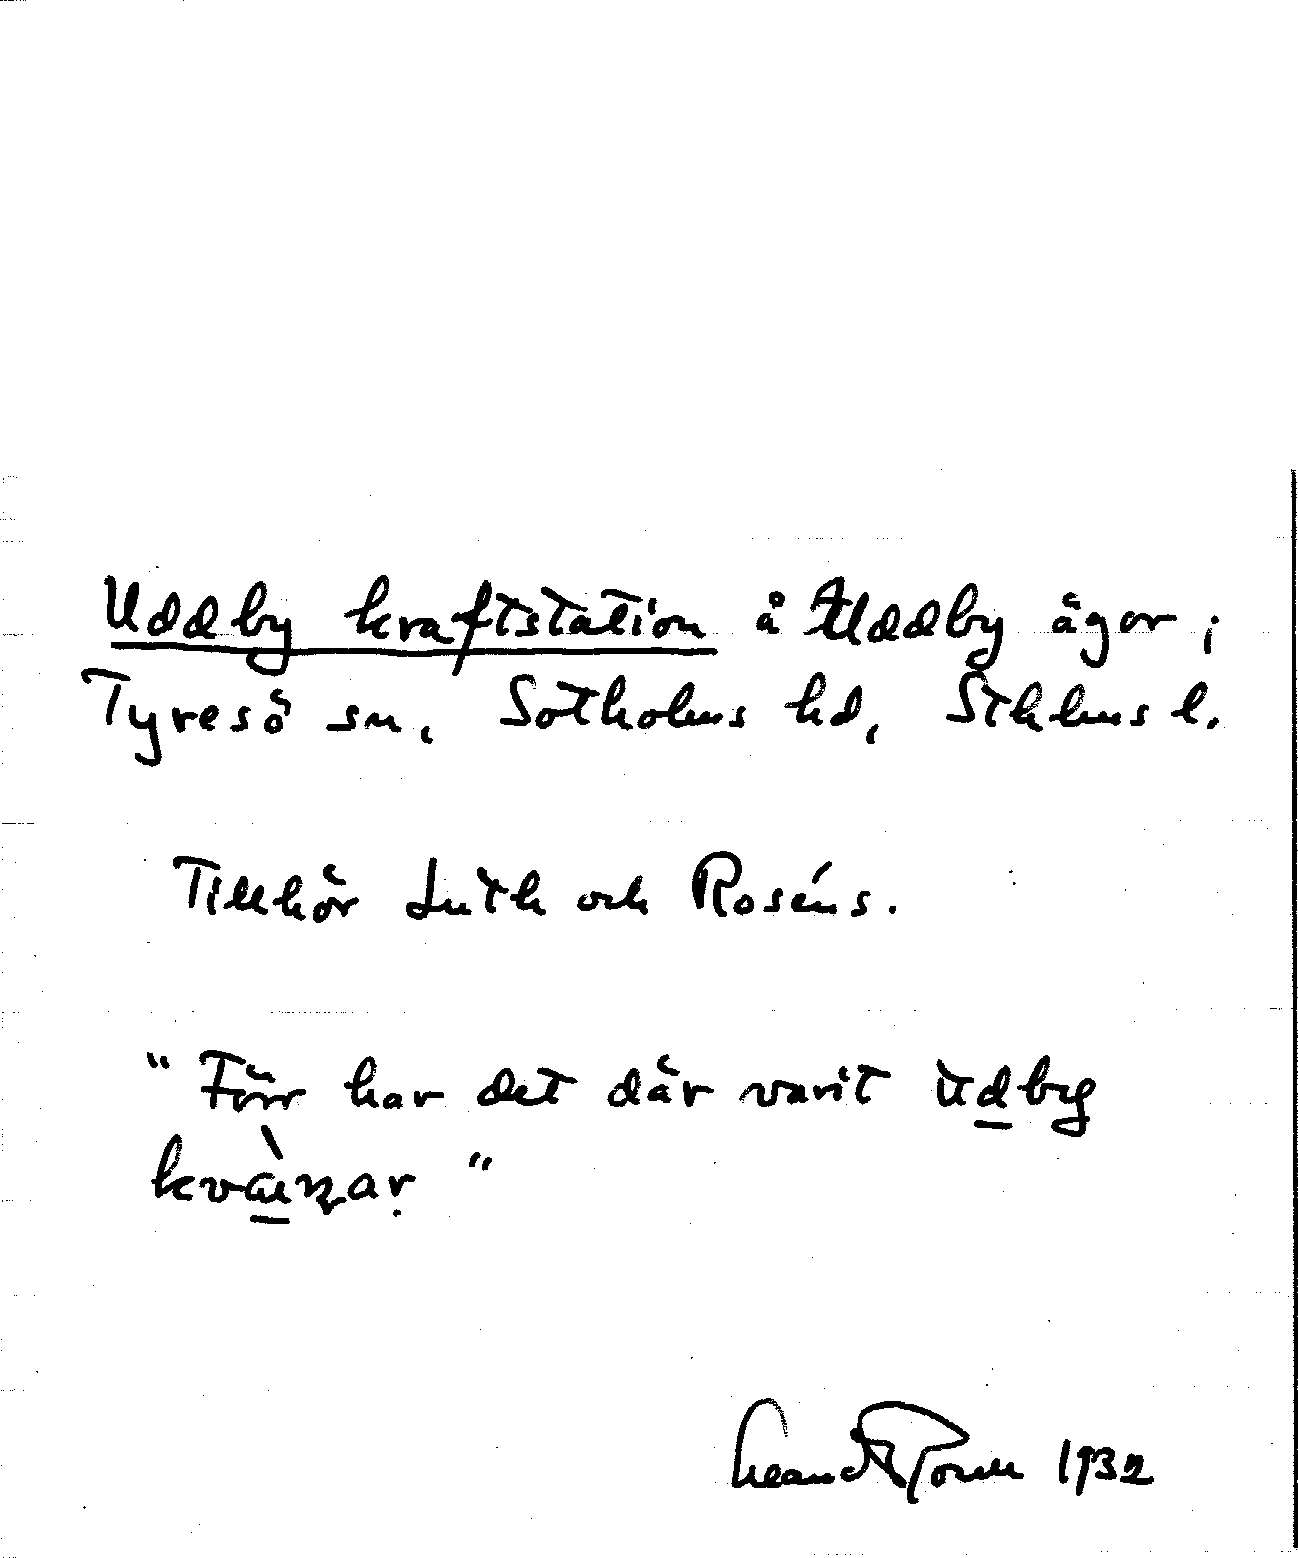 Uddby kraftstation å Uddby ägor i
Tyresö sn, Sotholms hd, Sthlms l.
Tillhör Luth och Roséns.
"Förr har det där varit ùdby
kvàrnar"
1932